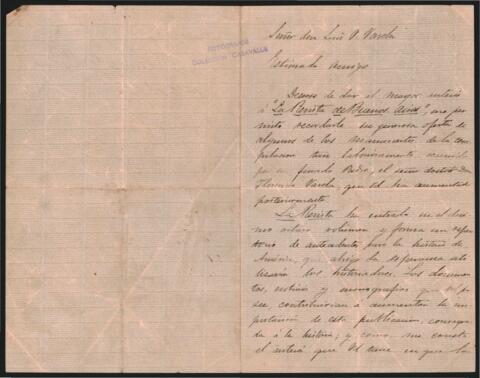 Señor don Luis V. Varela
AUTÓGRAFOS
COLECCIÓN CASAVALLE
Estimado amigo
Deseoso de dar el mayor interés
á "La Revista de Buenos Aires", me per
mito recordarle su generosa oferta de
algunos de los de la com
pilacion tan laboriosamente reunida
por su finado Padre, el señor doctor Don
Florencio Varela, que Vd. ha aumentado
posteriormente.
La Revista ha entrado en el déci
mo octavo volúmen y forma un reper
torio de antecedentes para la historia de
América, que abrigo la esperanza uti
lizarán los historiadores. Los documen
tos, noticias y monografias que Vd. po
see, contribuirian á aumentar la im
portancia de esta publicacion, consagra
da á la historia; y como me consta
el interés que Vd. tiene en que la